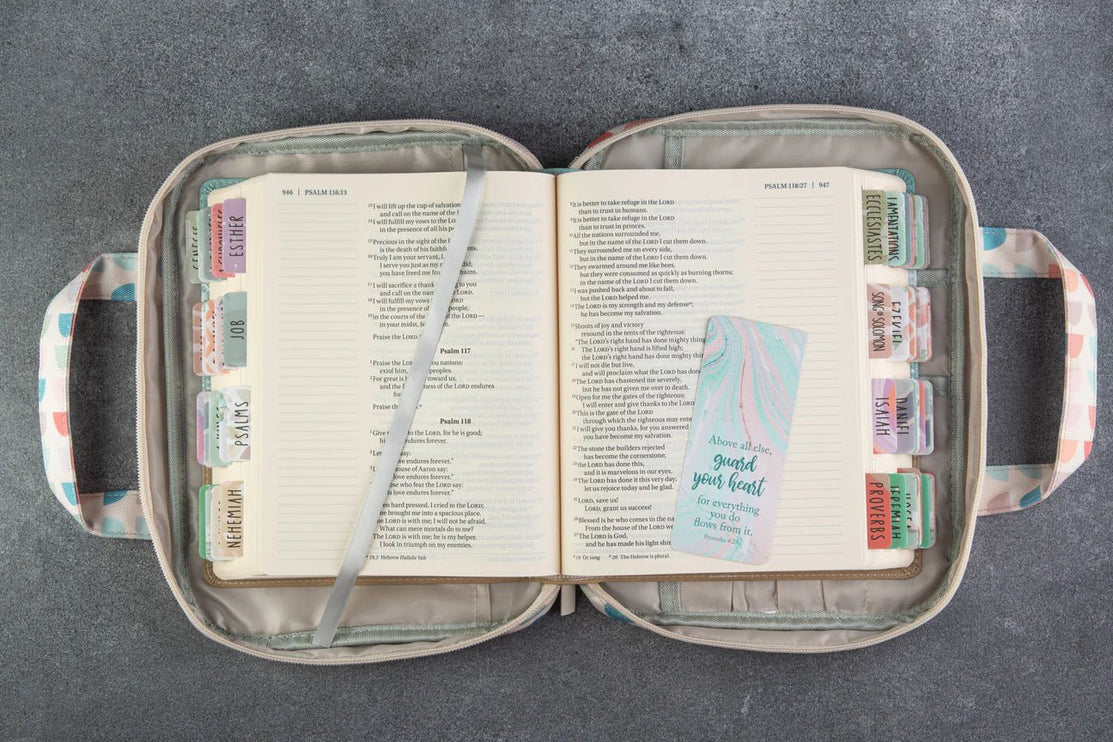 946 | PSALM 116:13
13I will lift up the cup of salvation
and call on the name of the
14I will fulfill my vows to the LORD
in the presence of all his
15Precious in the sight of the
is the death of his faithful
16Truly I am your servant,
I serve you just as my did;
you have freed me from chains.
17I will sacrifice a thank to you
and call on the name of LORD.
18I will fulfill my vows to the LORD
in the presence of people,
19in the courts of the of the LORD—
in your midst,
Praise the LORD.
Psalm 117
1Praise the LORD, nations;
extol him, peoples.
2For great is toward us,
and the of the LORD endures
Praise
Psalm 118
1Give LORD, for he is good;
endures forever.
2Let say:
love endures forever."
3 house of Aaron say:
love endures forever."
4 who fear the LORD say:
love endures forever."
5When hard pressed, I cried to the LORD;
he brought me into a spacious place.
6The LORD is with me; I will not be afraid.
What can mere mortals do to me?
7The LORD is with me; he is my helper.
I look in triumph on my enemies.
a 19,2 Hebrew Hallelu Yah
PSALM 118:27 | 947
8It is better to take refuge in the LORD
than to trust in humans.
9It is better to take refuge in the LORD
than to trust in princes.
10All the nations surrounded me,
but in the name of the LORD I cut them down.
11They surrounded me on every side,
but in the name of the LORD I cut them down.
12They swarmed around me like bees,
but they were consumed as quickly as burning thorns;
in the name of the LORD I cut them down.
13I was pushed back and about to fall,
but the LORD helped me.
14The LORD is my strength and my defense;
he has become my salvation.
15Shouts of joy and victory
resound in the tents of the righteous:
"The LORD's right hand has done mighty thing
16The LORD's right hand is lifted high;
the LORD's right hand has done mighty thing
17I will not die but live,
and will proclaim what the LORD has done
18The LORD has chastened me severely,
but he has not given me over to death.
19Open for me the gates of the righteous;
I will enter and give thanks to the LORD
20This is the gate of the LORD
through which the righteous may enter
21I will give you thanks, for you answered
you have become my salvation.
22The stone the builders rejected
has become the cornerstone;
23the LORD has done this,
and it is marvelous in our eyes.
24The LORD has done it this very day;
let us rejoice today and be glad.
25LORD, save us!
LORD, grant us success!
26Blessed is he who comes in the na
From the house of the LORD we
27The LORD is God,
and he has made his light shin
a 14 Or song b 26 The Hebrew is plural.
Above all else,
guard
your heart
for everything
you do
flows from it.
Proverbs 4:23
GENESIS
ESTHER
JOB
PSALMS
NEHEMIAH
ECCLESIASTES
LAMENTATIONS
SONG OF SOLOMON
EZEKIEL
ISAIAH
DANIEL
PROVERBS
JEREMIAH
HOSEA